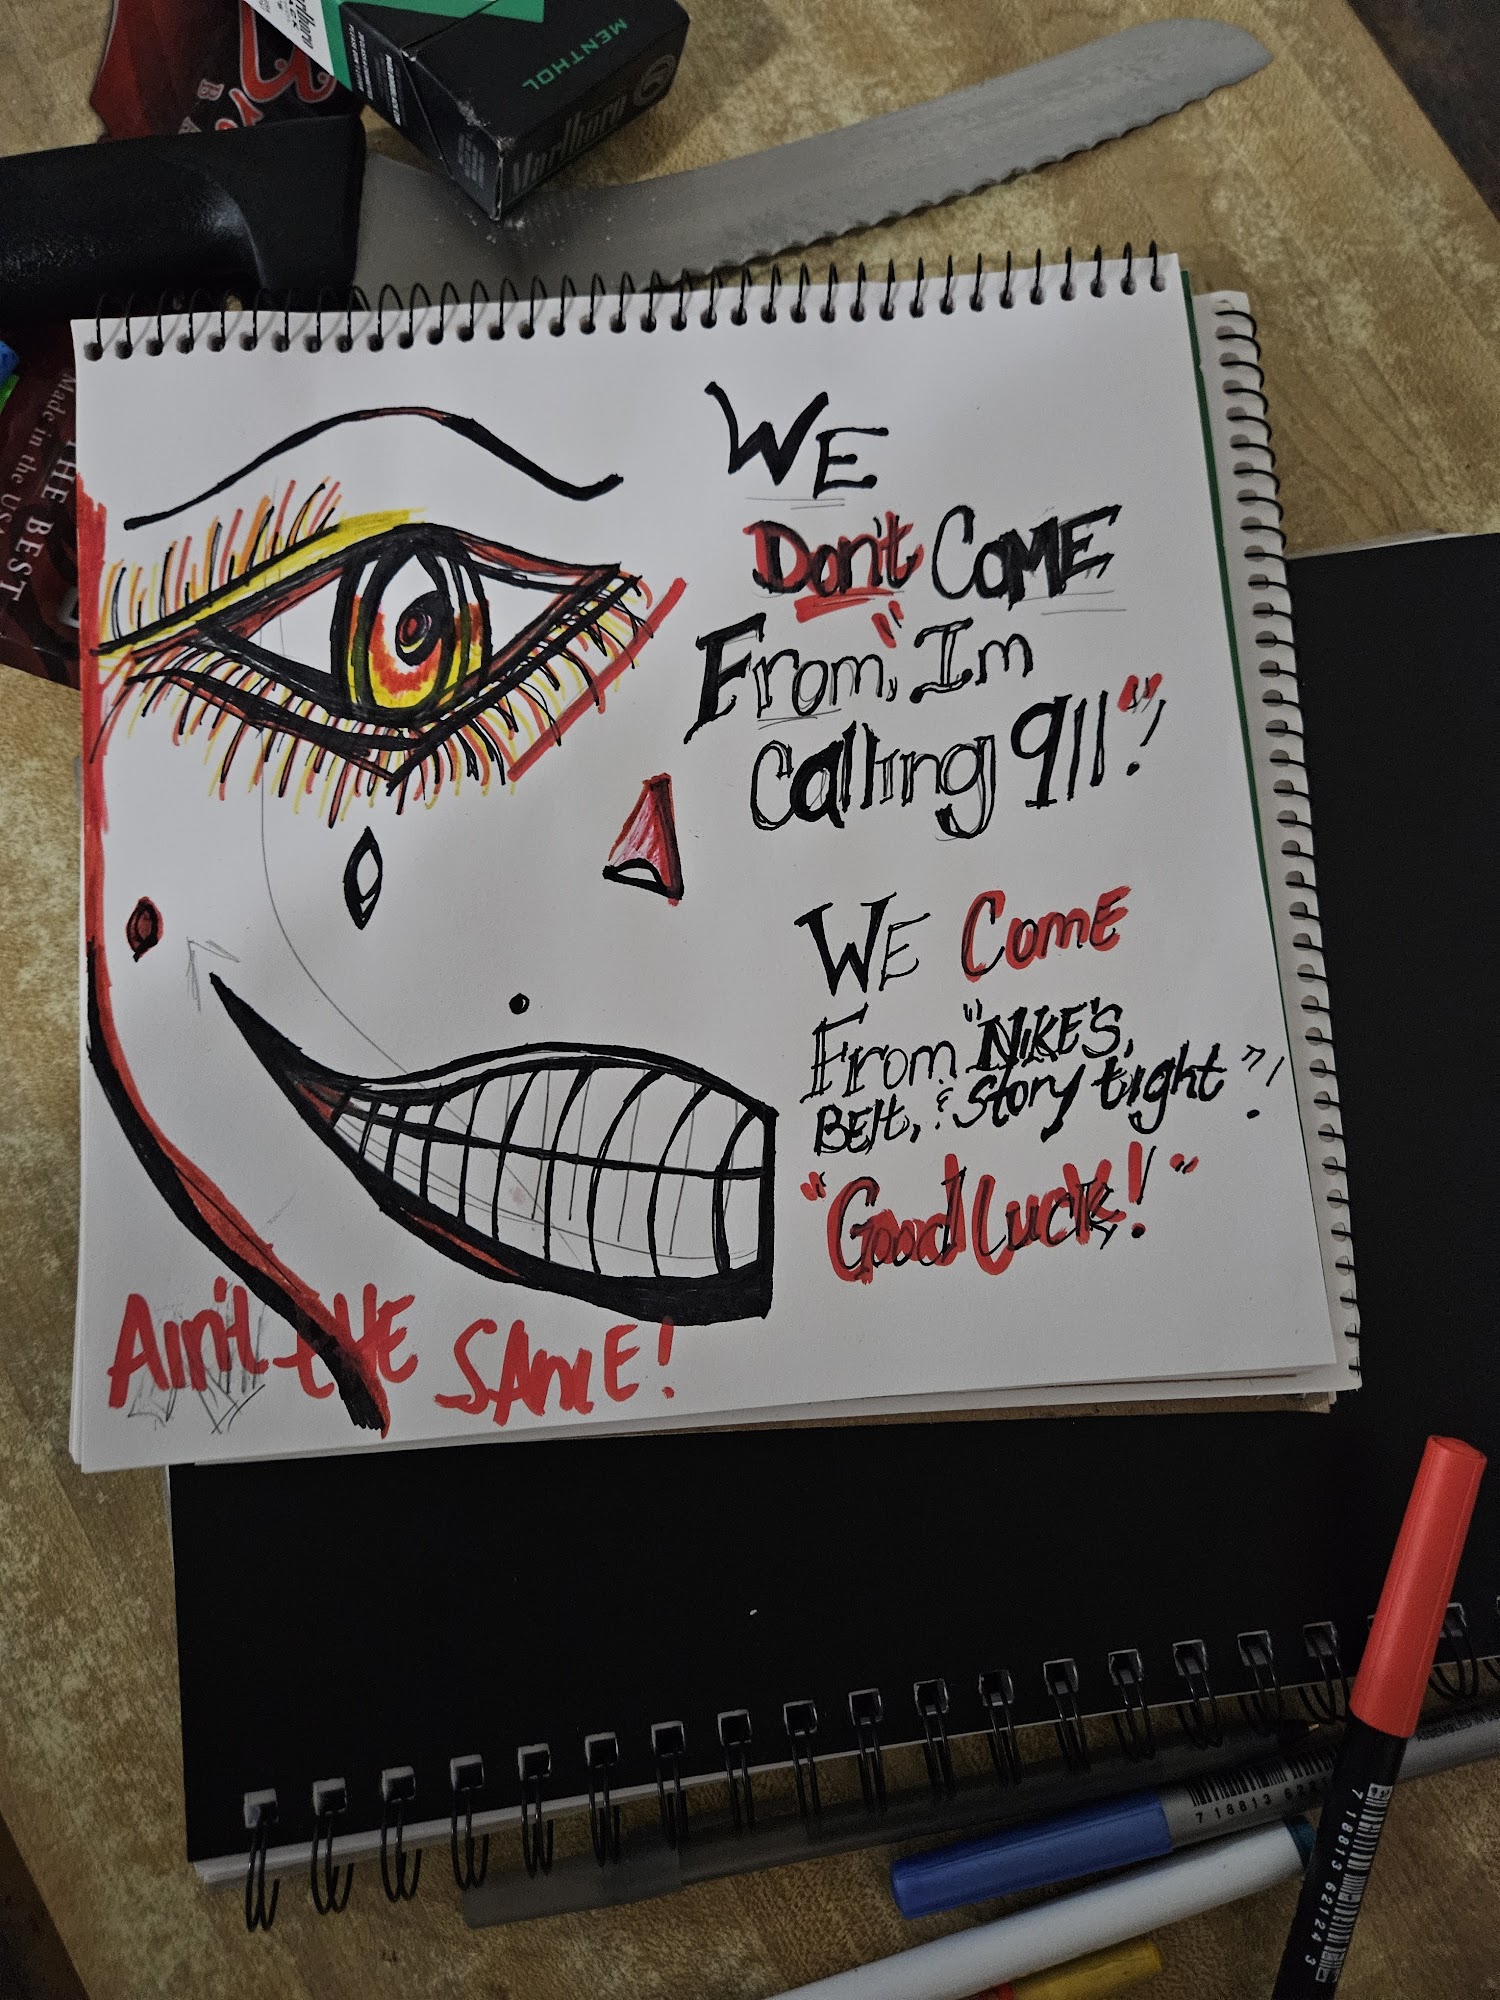 MENTHOL
Marlboro
THE BEST
Made in the USA
WE
Don't COME
From, "Im
Calling 911"!
WE Come
From "NIKE'S,
BElt, & Story tight"!
"Good Luck!"
Ain't tHE SAmE!
7 18813 628
7 18813 62124 3